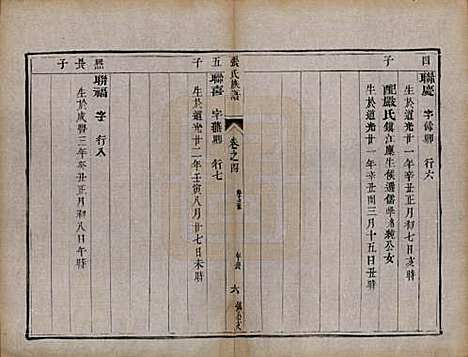 四子
聯慶 字餘卿 行六
生於道光廿一年辛丑正月初七日亥時
配嚴氏鎮江廩生候選儒學鴻範公女
生於道光廿一年辛丑閏三月十五日丑時
張氏族譜
卷之四
六
五子
聯喜 字藩卿 行七
生於道光廿二年壬寅八月廿七日未時
熙長子
聯福 字 行八
生於咸豐三年癸丑正月初八日午時